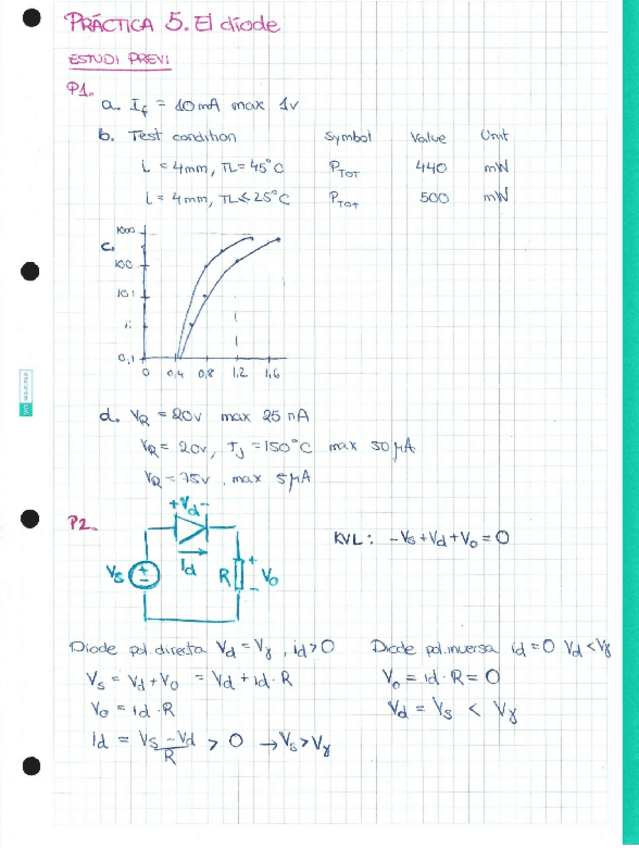 PRÁCTICA 5. El díode
ESTUDI PREVI
P1.
a. If = 10mA max 1v
b. Test condition Symbol Value Unit
L = 4mm, TL = 45°C PTOT 440 mW
L = 4mm, TL ≤ 25°C PTOT 500 mW
c.
1000
100
10
1
0,1
0 0,4 0,8 1,2 1,6
d. VR = 20v max 25 nA
VR = 20v, Tj = 150°C max 50 μA
VR = 75v, max 5μA
P2.
+Vd-
Vs + - Id R + Vo -
KVL: -Vs + Vd + Vo = 0
Díode pol. directa Vd = Vγ, id > 0
Vs = Vd + Vo = Vd + id · R
Vo = id · R
id = Vs - Vd / R > 0 → Vs > Vγ
Díode pol. inversa id = 0 Vd < Vγ
Vo = id · R = 0
Vd = Vs < Vγ